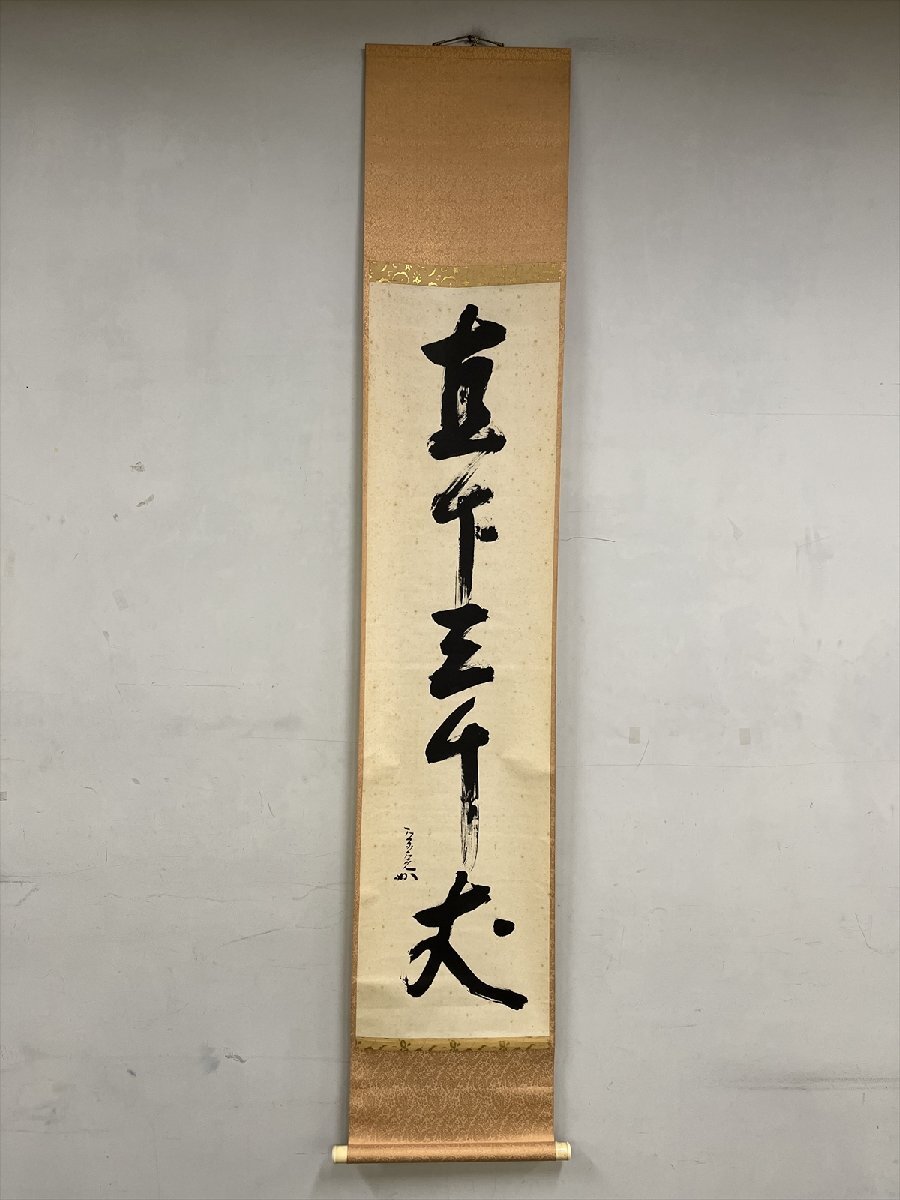 直下三千丈